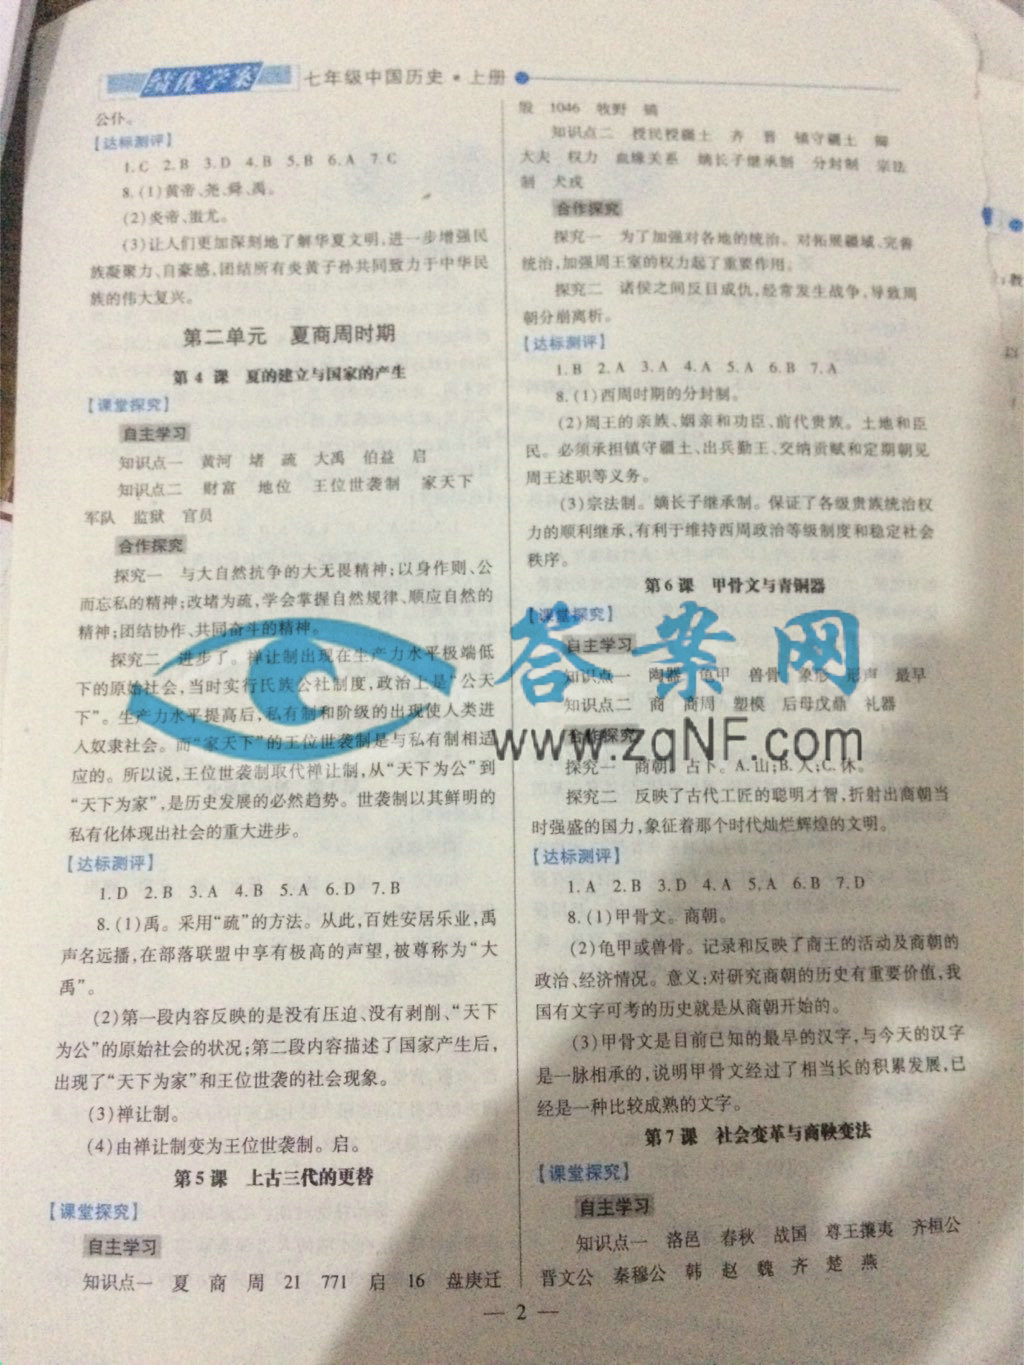 绩优学案
七年级中国历史·上册
公仆。
【达标测评】
1.C 2.B 3.D 4.B 5.B 6.A 7.C
8.(1)黄帝、尧、舜、禹。
(2)炎帝、蚩尤。
(3)让人们更加深刻地了解华夏文明,进一步增强民
族凝聚力、自豪感,团结所有炎黄子孙共同致力于中华民
族的伟大复兴。
第二单元 夏商周时期
第4课 夏的建立与国家的产生
【课堂探究】
自主学习
知识点一 黄河 堵 疏 大禹 伯益 启
知识点二 财富 地位 王位世袭制 家天下
军队 监狱 官员
合作探究
探究一 与大自然抗争的大无畏精神;以身作则、公
而忘私的精神;改堵为疏,学会掌握自然规律、顺应自然的
精神;团结协作、共同奋斗的精神。
探究二 进步了。禅让制出现在生产力水平极端低
下的原始社会,当时实行氏族公社制度,政治上是“公天
下”。生产力水平提高后,私有制和阶级的出现使人类进
入奴隶社会。而“家天下”的王位世袭制是与私有制相适
应的。所以说,王位世袭制取代禅让制,从“天下为公”到
“天下为家”,是历史发展的必然趋势。世袭制以其鲜明的
私有化体现出社会的重大进步。
【达标测评】
1.D 2.B 3.A 4.B 5.A 6.D 7.B
8.(1)禹。采用“疏”的方法。从此,百姓安居乐业,禹
声名远播,在部落联盟中享有极高的声望,被尊称为“大
禹”。
(2)第一段内容反映的是没有压迫、没有剥削、“天下
为公”的原始社会的状况;第二段内容描述了国家产生后,
出现了“天下为家”和王位世袭的社会现象。
(3)禅让制。
(4)由禅让制变为王位世袭制。启。
第5课 上古三代的更替
【课堂探究】
自主学习
知识点一 夏 商 周 21 771 启 16 盘庚迁
殷 1046 牧野 镐
知识点二 授民授疆土 齐 晋 镇守疆土 卿
大夫 权力 血缘关系 嫡长子继承制 分封制 宗法
制 犬戎
合作探究
探究一 为了加强对各地的统治。对拓展疆域、完善
统治,加强周王室的权力起了重要作用。
探究二 诸侯之间反目成仇,经常发生战争,导致周
朝分崩离析。
【达标测评】
1.B 2.A 3.A 4.A 5.A 6.B 7.A
8.(1)西周时期的分封制。
(2)周王的亲族、姻亲和功臣、前代贵族。土地和臣
民。必须承担镇守疆土、出兵勤王、交纳贡献和定期朝见
周王述职等义务。
(3)宗法制。嫡长子继承制。保证了各级贵族统治权
力的顺利继承,有利于维持西周政治等级制度和稳定社会
秩序。
第6课 甲骨文与青铜器
【课堂探究】
自主学习
知识点一 陶器 龟甲 兽骨 象形 形声 最早
知识点二 商 商周 塑模 后母戊鼎 礼器
合作探究
探究一 商朝。占卜。A.山;B.人;C.休。
探究二 反映了古代工匠的聪明才智,折射出商朝当
时强盛的国力,象征着那个时代灿烂辉煌的文明。
【达标测评】
1.A 2.B 3.D 4.A 5.A 6.B 7.D
8.(1)甲骨文。商朝。
(2)龟甲或兽骨。记录和反映了商王的活动及商朝的
政治、经济情况。意义:对研究商朝的历史有重要价值,我
国有文字可考的历史就是从商朝开始的。
(3)甲骨文是目前已知的最早的汉字,与今天的汉字
是一脉相承的,说明甲骨文经过了相当长的积累发展,已
经是一种比较成熟的文字。
第7课 社会变革与商鞅变法
【课堂探究】
自主学习
知识点一 洛邑 春秋 战国 尊王攘夷 齐桓公
晋文公 秦穆公 韩 赵 魏 齐 楚 燕
— 2 —
答案网
www.zqNF.com